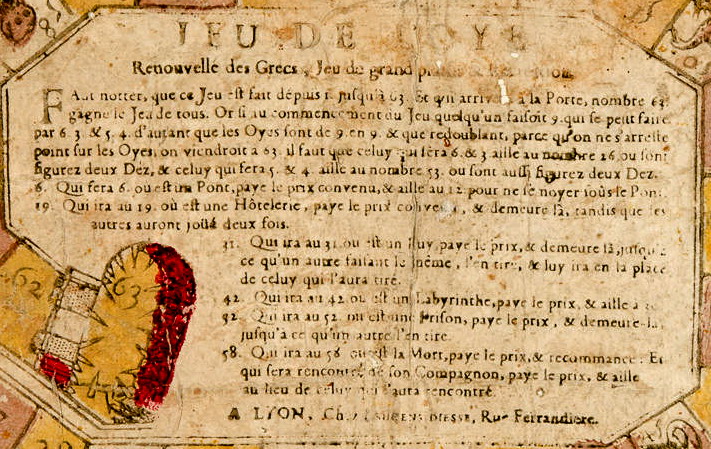 JEU DE L'OYE
Renouvelle des Grecs, Jeu de grand
FAut notter, que ce Jeu est fait depuis 1. jusqu'à 63. & qui arrive à la Porte, nombre 63.
gagne le Jeu de tous. Or si au commencement du Jeu quelqu'un faisoit 9. qui se peut faire
par 6. 3. & 5. 4. d'autant que les Oyes sont de 9. en 9. & que redoublant, parce qu'on ne s'arreste
point sur les Oyes, on viendroit a 63. il faut que celuy qui fera 6. & 3 aille au nombre 26. ou sont
figurez deux Dez, & celuy qui fera 5. & 4. aille au nombre 53. ou sont aussi figurez deux Dez.
6. Qui fera 6. ou est un Pont, paye le prix convenu, & aille au 12. pour ne se noyer sous le Pont
19. Qui ira au 19. où est une Hôtelerie, paye le prix convenu, & demeure là, tandis que les
autres auront joüé deux fois.
31. Qui ira au 31. ou est un Puy, paye le prix, & demeure là, jusqu'à
ce qu'un autre faisant le même, l'en tire, & luy ira en la place
de celuy qui l'aura tiré.
42. Qui ira au 42 ou est un Labyrinthe, paye le prix, & aille a
52. Qui ira au 52. ou est une Prison, paye le prix, & demeure-la,
jusqu'à ce qu'un autre l'en tire
58. Qui ira au 58 ou est la Mort, paye le prix, & recommance: Et
qui sera rencontré de son Compagnon, paye le prix, & aille
au lieu de celuy qui l'aura rencontré.
A LYON, Chez Ruë Ferrandiere.
62
63